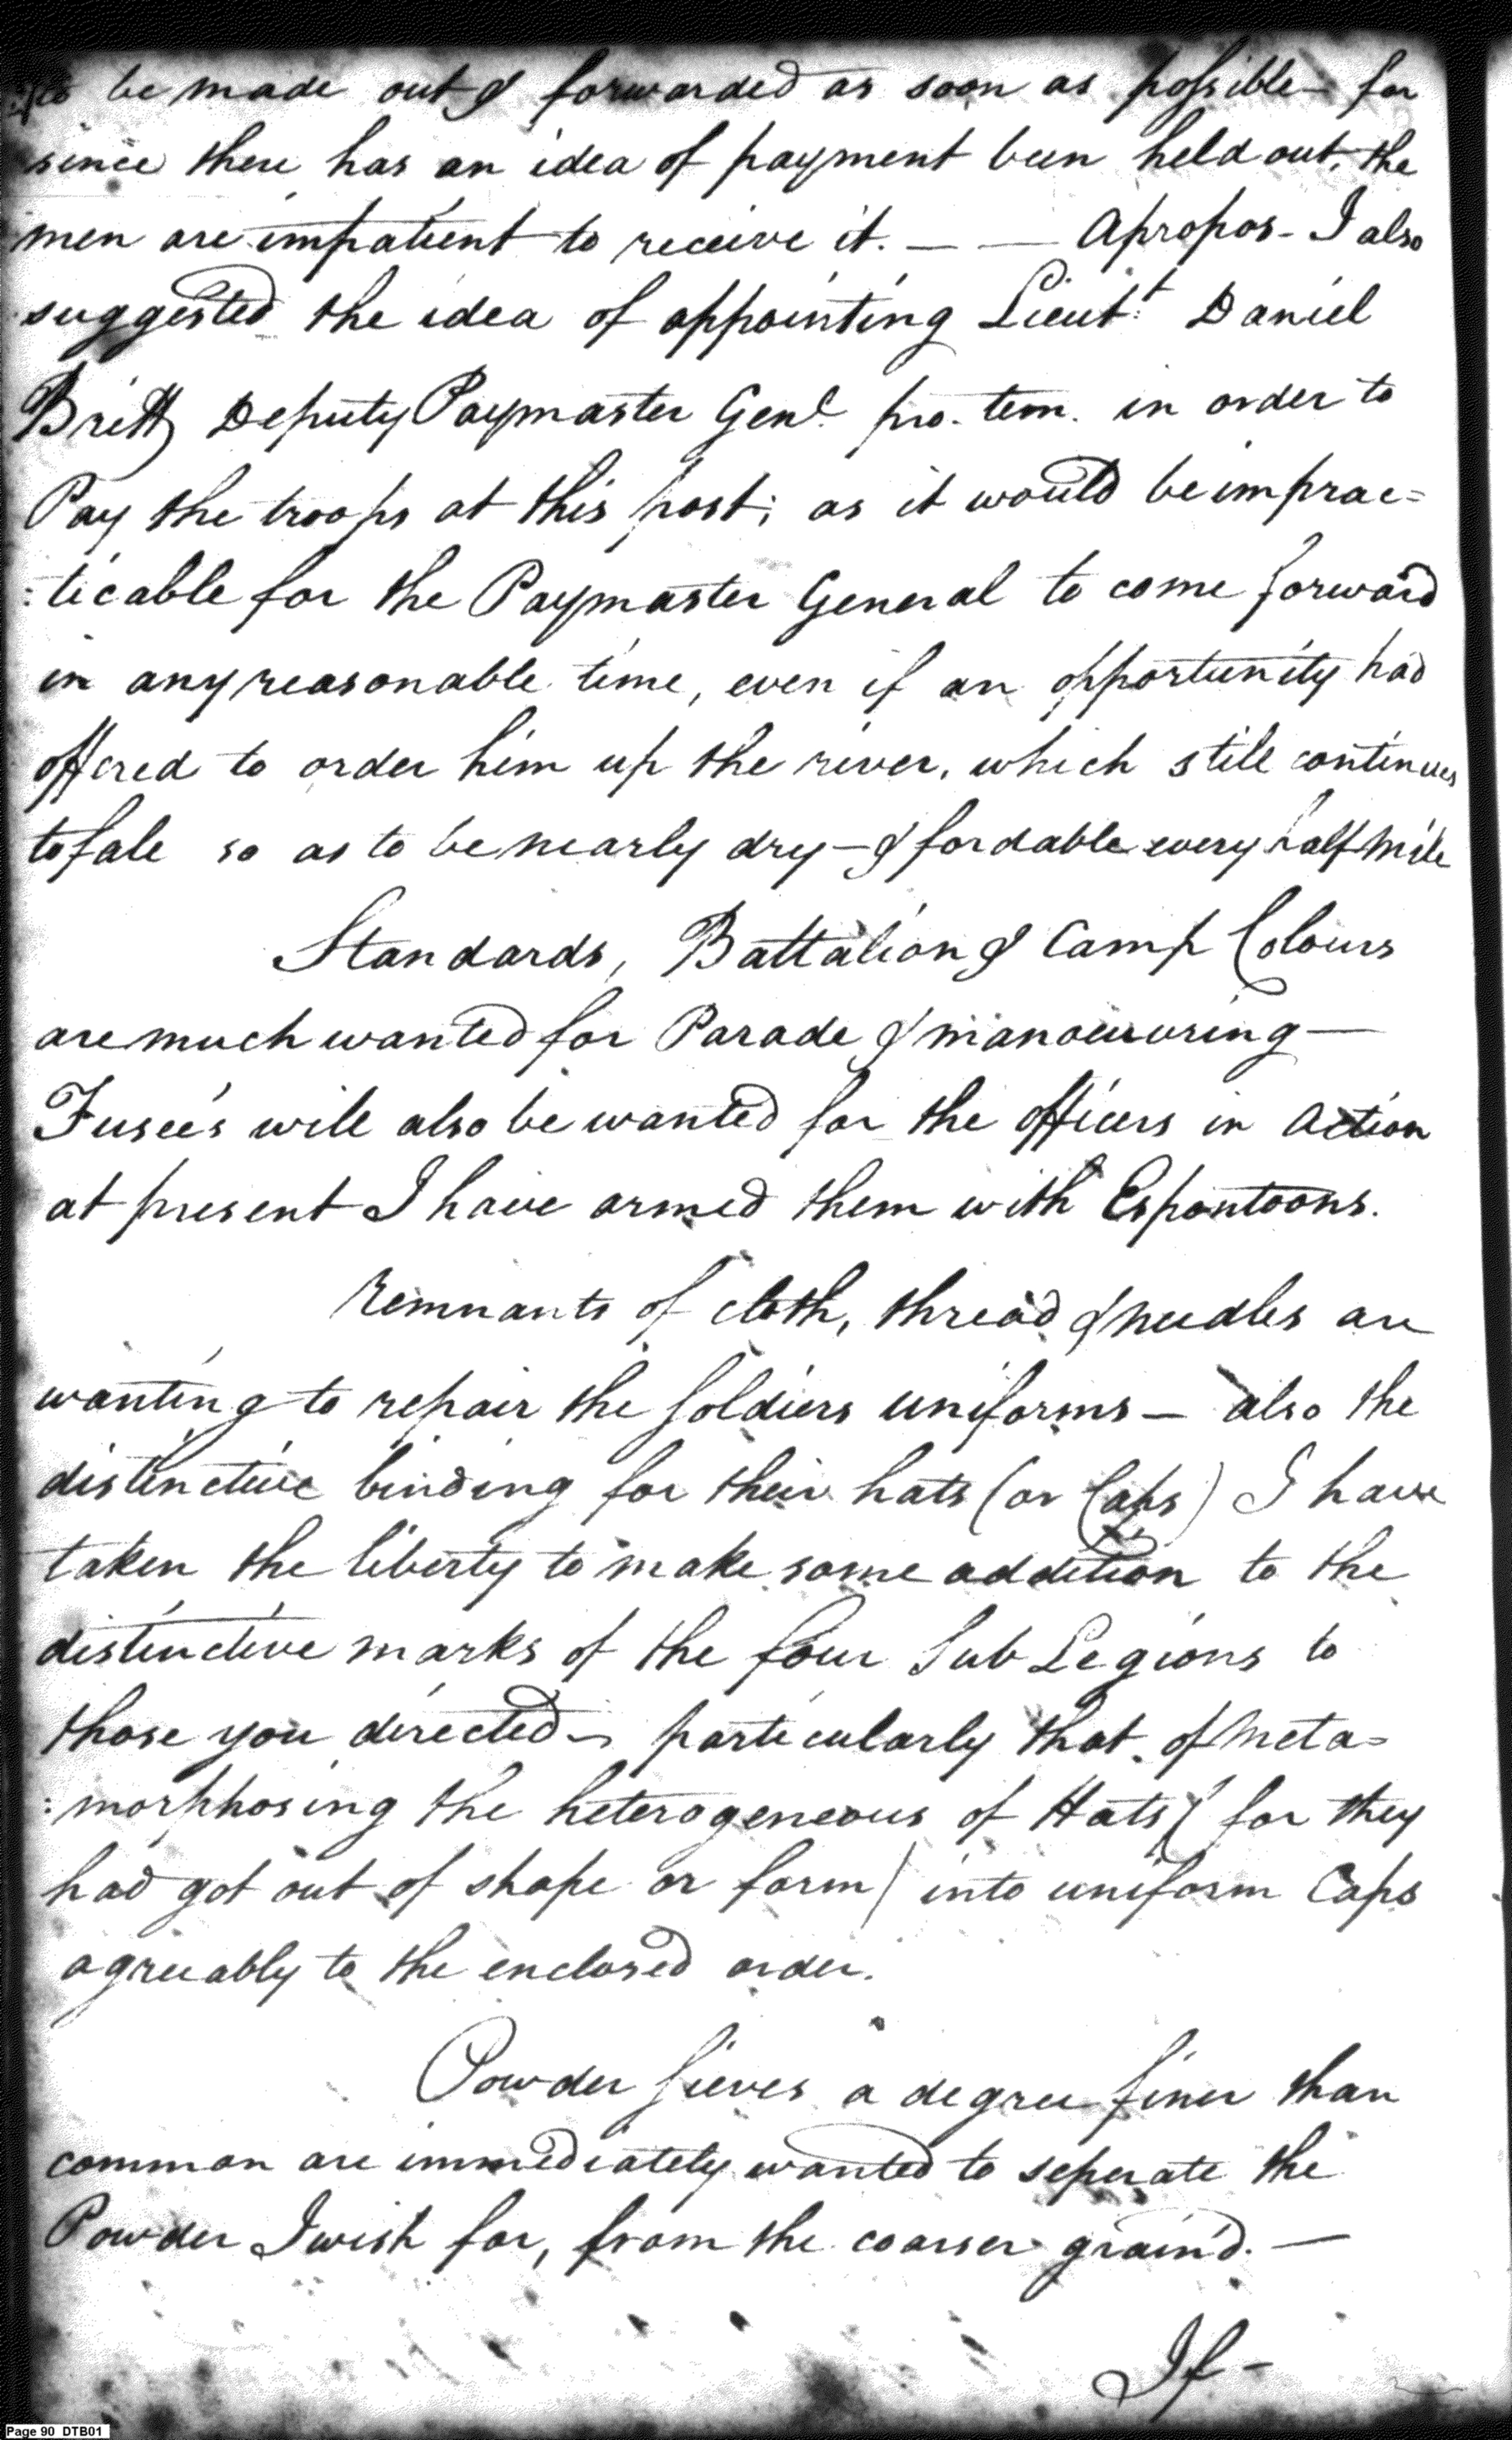 to be made out & forwarded as soon as possible for
since there has an idea of payment been held out, the
men are impatient to receive it. — — Apropos - I also
suggested the idea of appointing Lieut.t Daniel
Britt Deputy Paymaster Genl. pro. tem. in order to
Pay the troops at this post; as it would be imprac=
:ticable for the Paymaster General to come forward
in any reasonable time, even if an opportunity had
offered to order him up the river, which still continues
to fale so as to be nearly dry — & fordable every half mile
Standards, Battalion & Camp Colours
are much wanted for Parade & manoeuvring —
Fusees will also be wanted for the officers in Action
at present I have armed them with Espontoons.
Remnants of cloth, thread & needles are
wanting to repair the soldiers uniforms — also the
distinctive binding for their hats (or Caps) I have
taken the liberty to make some addition to the
distinctive marks of the four Sub Legions to
those you directed - particularly that of meta=
:morphosing the heterogeneous of Hats (for they
had got out of shape or form) into uniform Caps
agreeably to the enclosed order.
Powder sieves a degree finer than
common are immediately wanted to seperate the
Powder I wish for, from the coarser grain'd. —
If -
Page 90 DTB01